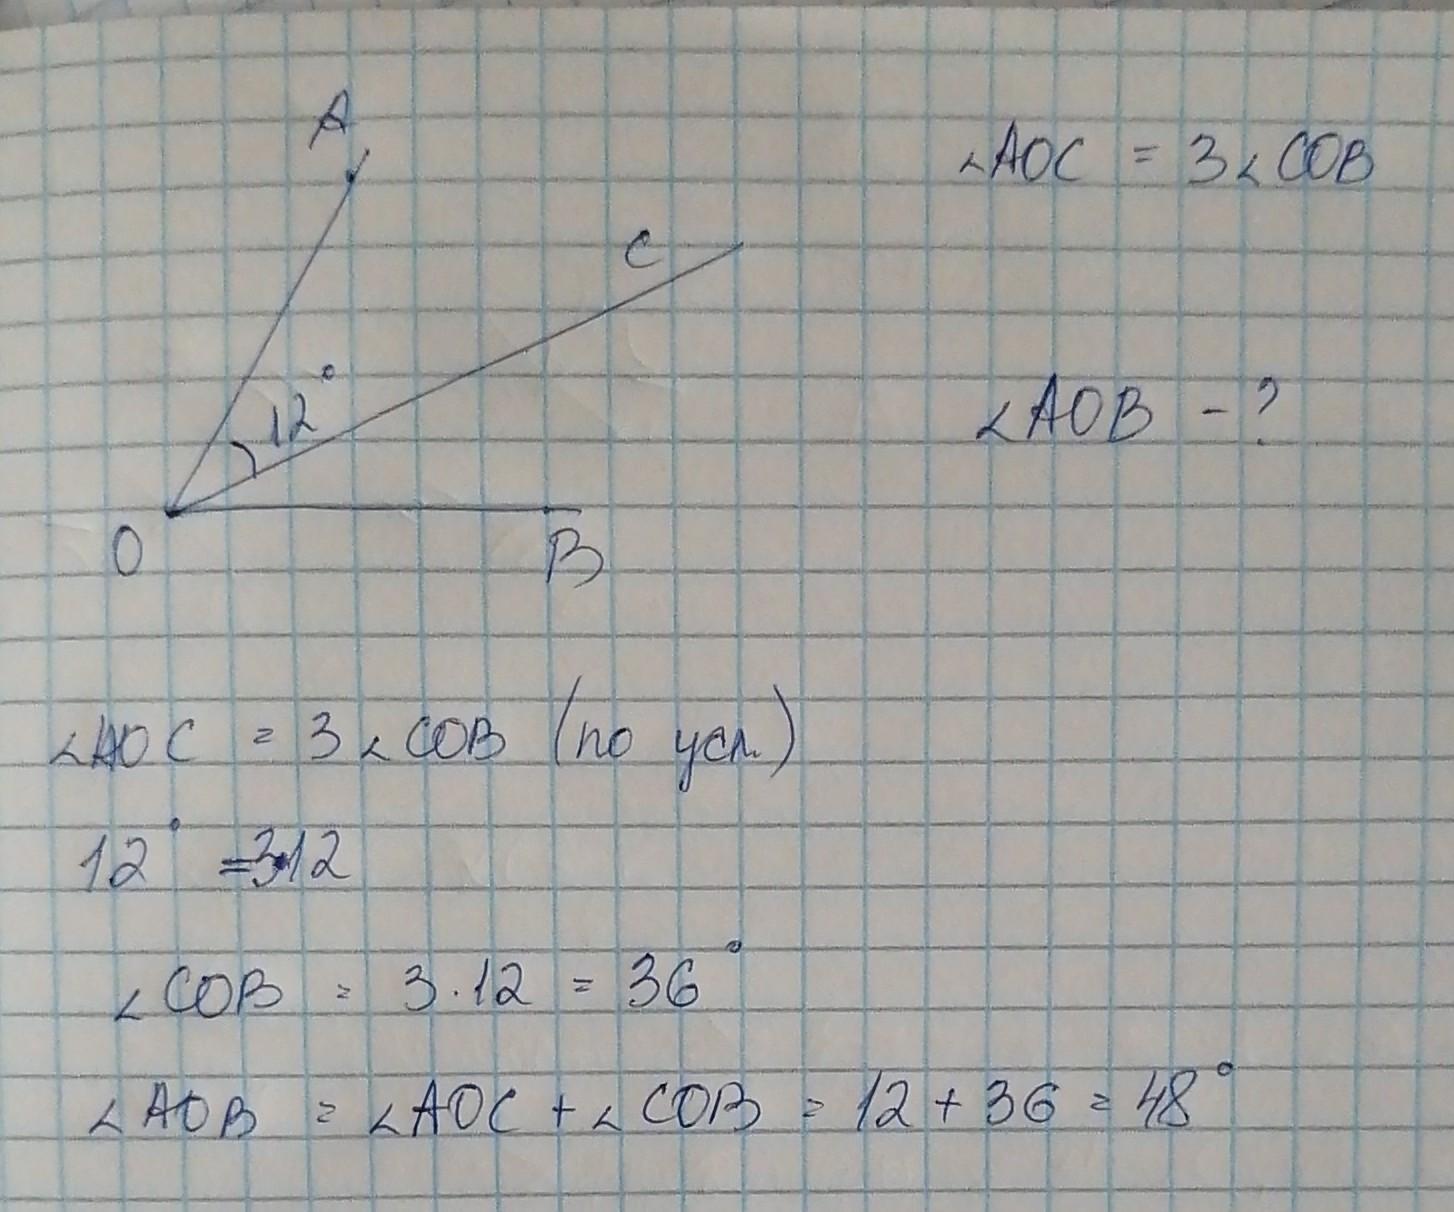 A
∠AOC = 3∠COB
C
12°
∠AOB - ?
O
B
∠AOC = 3∠COB (по усл.)
12° =3·12
∠COB = 3·12 = 36°
∠AOB = ∠AOC + ∠COB = 12 + 36 = 48°